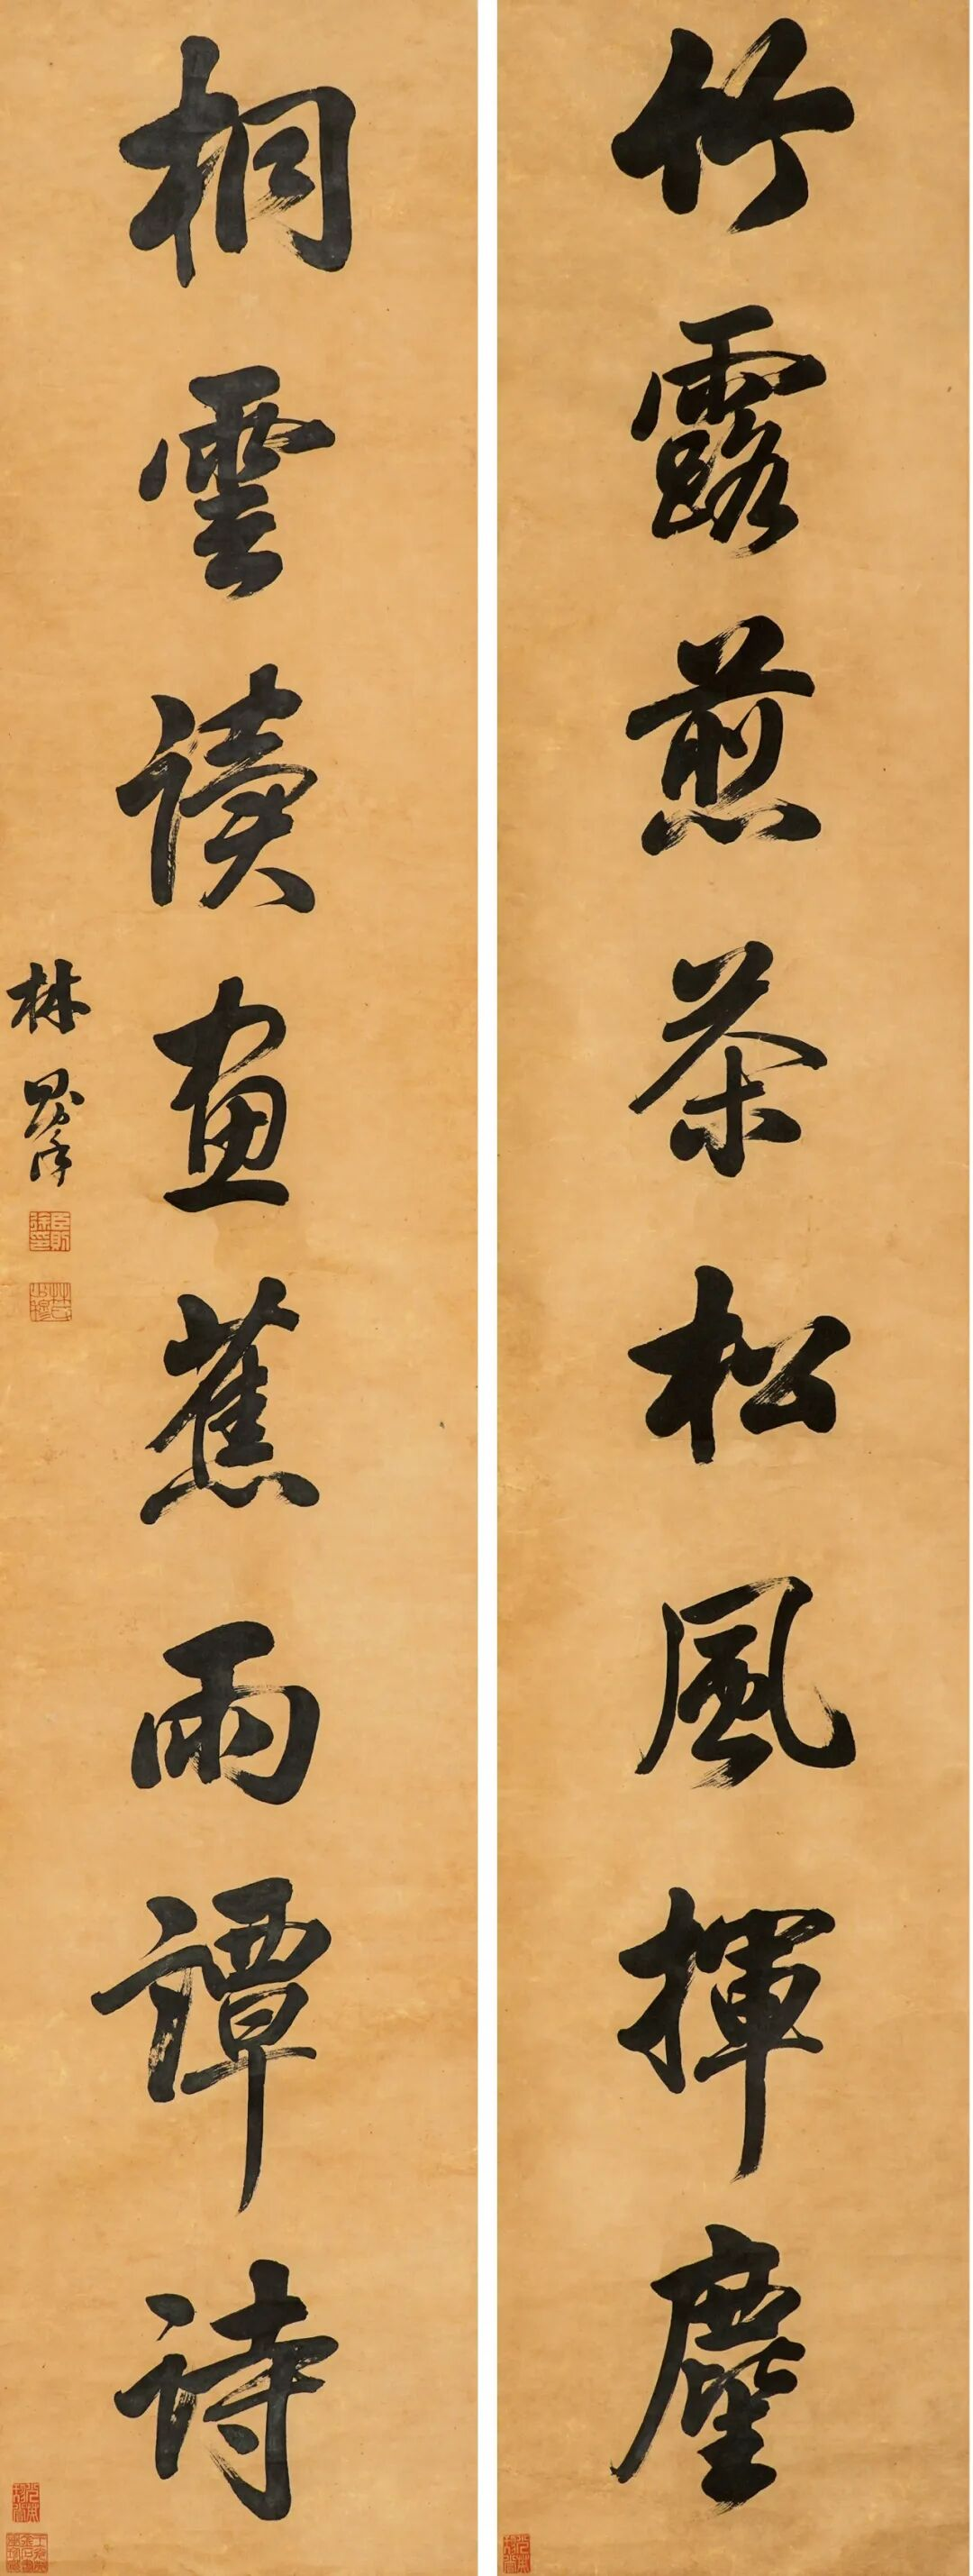 竹露煎茶松風揮麈
桐雲讀畫蕉雨譚詩
林則徐
臣則徐印